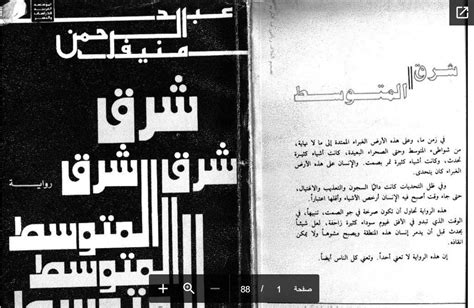 عبد
الرحمن
منيف
شرق
شرق شرق
المتوسط
رواية
شرق
المتوسط
في زمن ما، وعلى هذه الأرض الغبراء الممتدة إلى ما لا نهاية،
من شواطىء المتوسط وحتى الصحراء البعيدة، كانت أشياء كثيرة
تحدث، وكانت أشياء كثيرة تمر بصمت. والإنسان على هذه الأرض
كان يتحدى.
وفي ظل التحديات كانت دائماً السجون والتعذيب والاغتيال،
حتى جاء وقت أصبح فيه الإنسان أرخص الأشياء وأقلها اعتباراً.
هذه الرواية تحاول أن تكون صرخة في جو الصمت، تنبيهاً، في
الوقت الذي تبدو في الأفق غيوم سوداء كثيرة زاحفة، لعل شيئاً
يحدث قبل أن يدمر إنسان هذه المنطقة ويصبح مشوهاً ولا يمكن
إنقاذه.
إنها لا تعني أحداً، وتعني كل الناس أيضاً.
صفحة 1 / 88